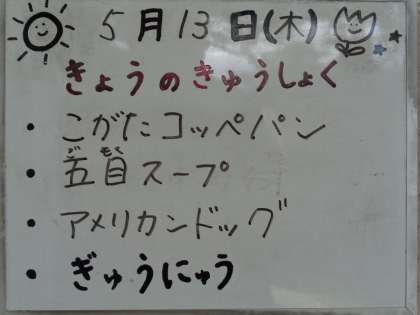 5月13日(木)
きょうのきゅうしょく
・こがたコッペパン
ごもく
・五目スープ
・アメリカンドッグ
・ぎゅうにゅう